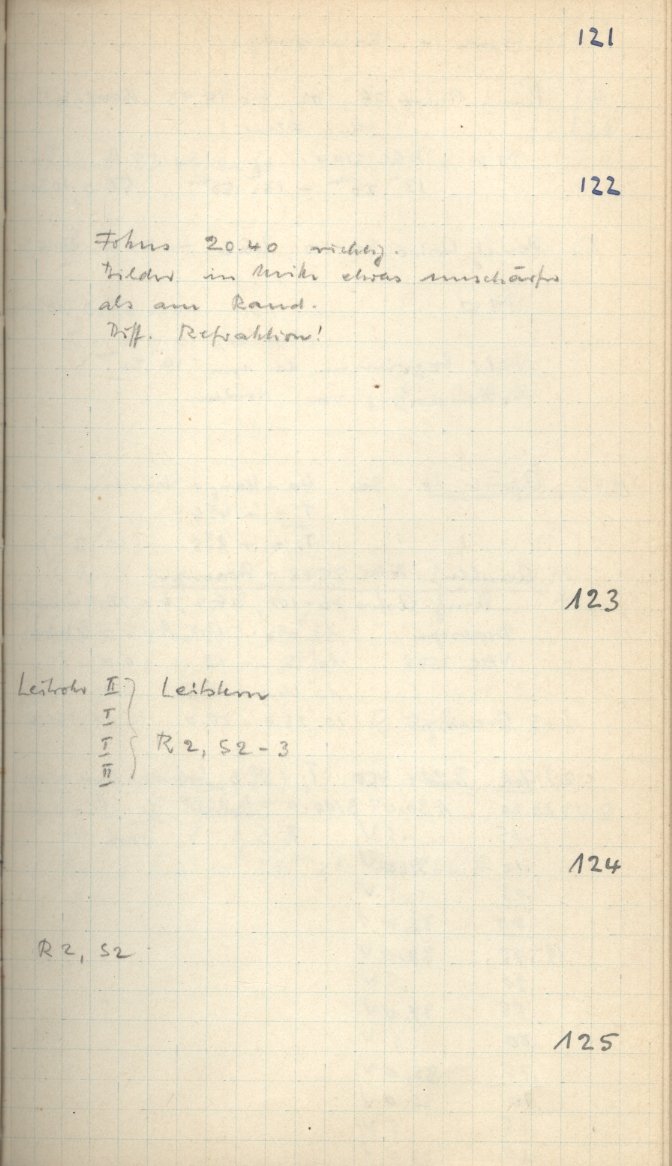 121
122
Fokus 20.40 richtig.
Bilder in Mitte etwas unschärfer
als am Rand.
Diff. Refraktion!
123
Leitrohr II } Leitstern
I
I } R 2, S2-3
II
124
R 2, S2
125